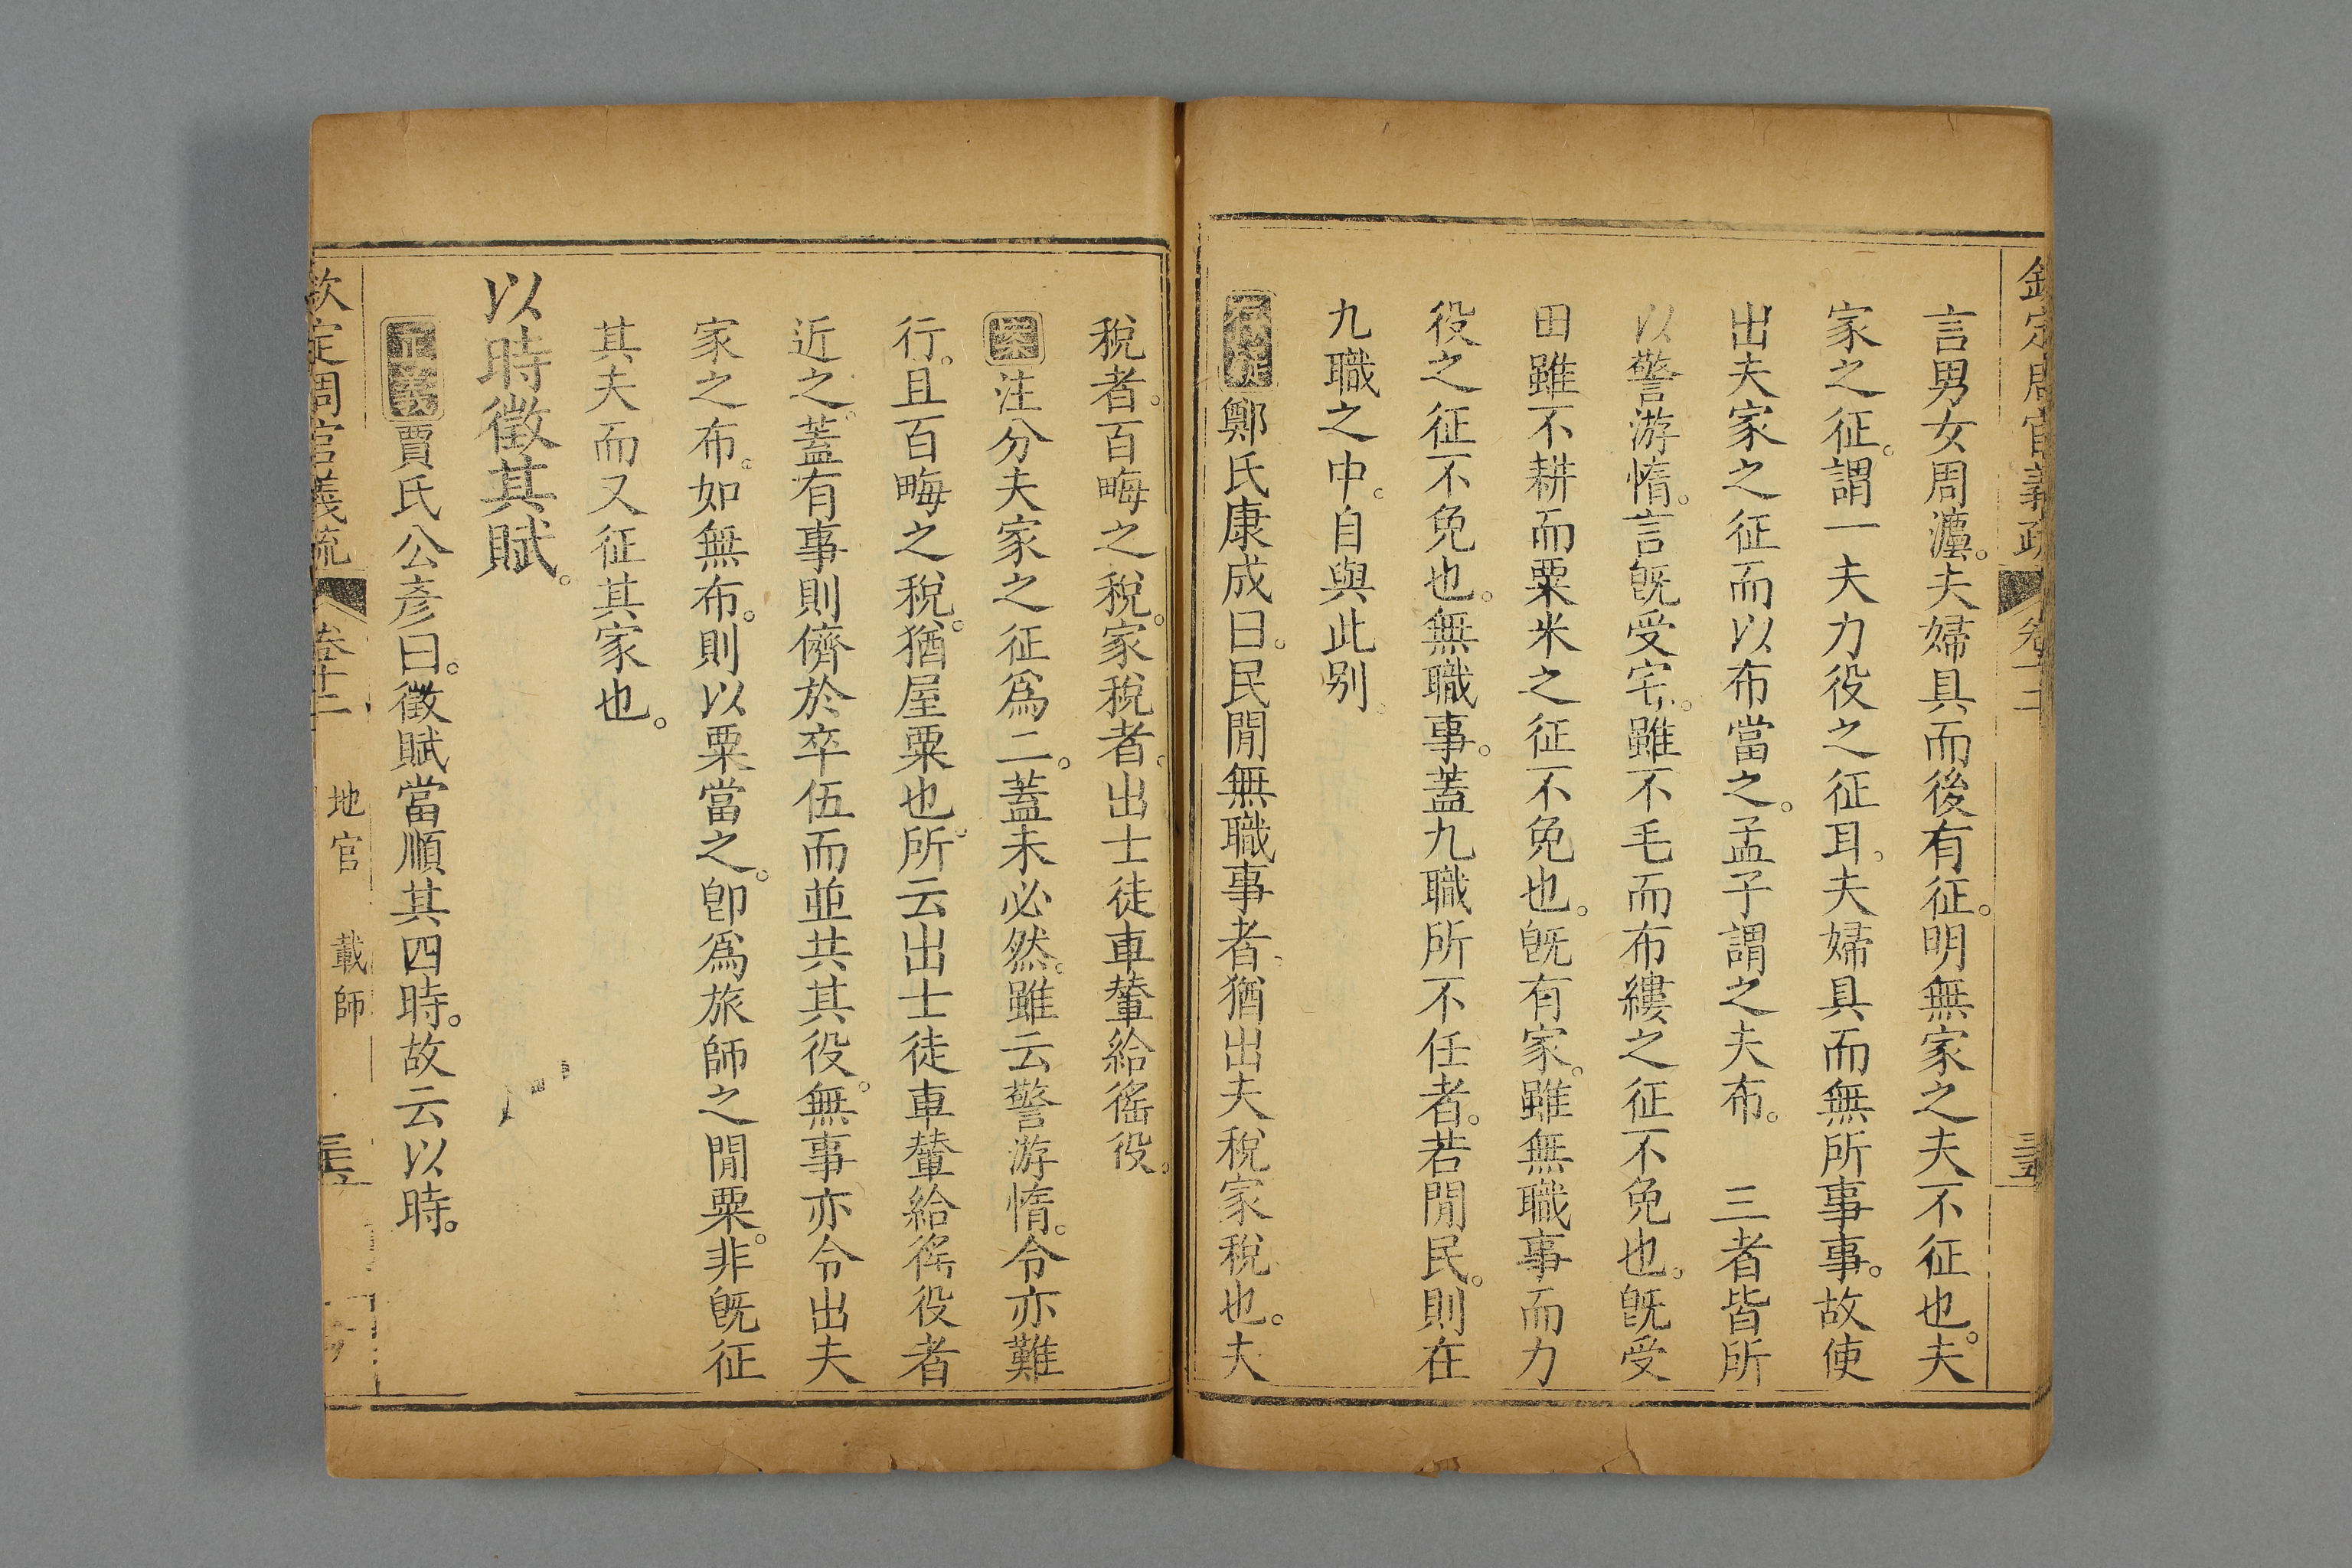 欽定周官義疏 卷十二 三五
言男女周灋。夫婦具而後有征。明無家之夫不征也。夫
家之征。謂一夫力役之征耳。夫婦具而無所事事。故使
出夫家之征而以布當之。孟子謂之夫布。 三者皆所
以警游惰。言旣受宅。雖不毛而布縷之征不免也。旣受
田雖不耕而粟米之征不免也。旣有家。雖無職事而力
役之征不免也。無職事。蓋九職所不任者。若閒民。則在
九職之中。自與此别。
鄭氏康成曰。民閒無職事者。猶出夫稅家稅也。夫
稅者。百畮之稅。家稅者。出士徒車輦給徭役。
案注分夫家之征爲二。蓋未必然。雖云警游惰。令亦難
行。且百畮之稅。猶屋粟也。所云出士徒車輦給徭役者
近之。蓋有事則儕於卒伍而並共其役。無事亦令出夫
家之布。如無布。則以粟當之。卽爲旅師之閒粟。非旣征
其夫而又征其家也。
以時徵其賦。
正義賈氏公彥曰。徵賦當順其四時。故云以時。
欽定周官義疏 卷十二 地官 載師 三五